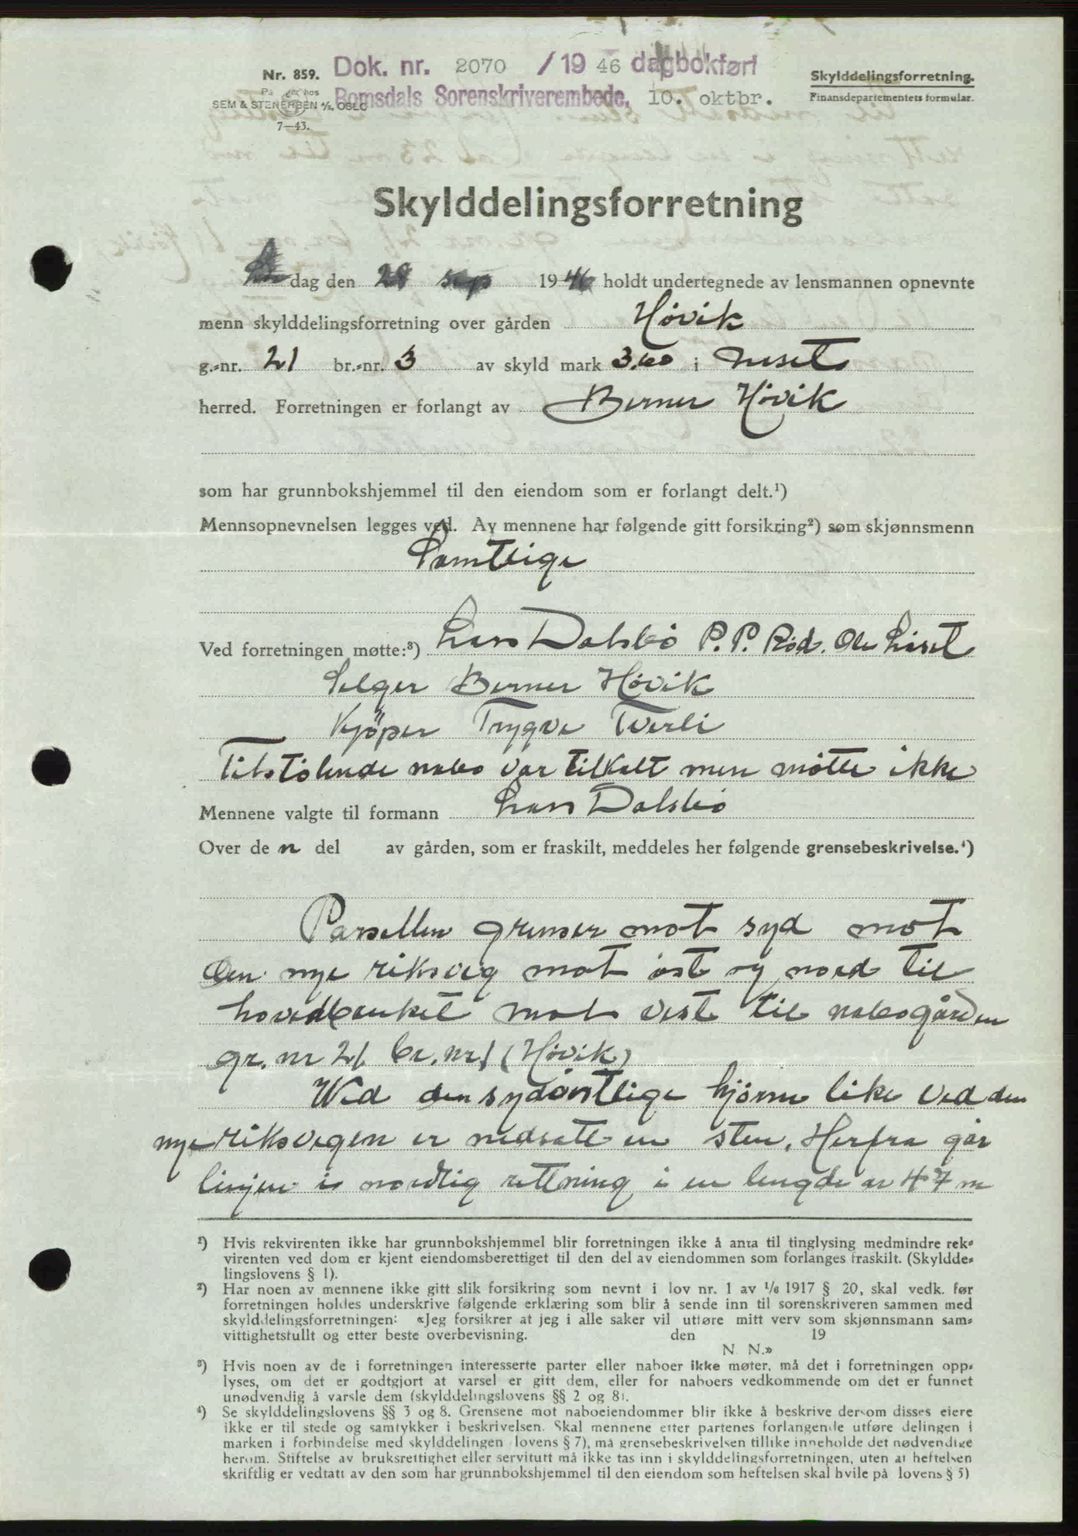 Nr. 859.
SEM & STENERSEN A/S, OSLO
7—43.
Dok. nr. 2070 / 19 46 dagbokført
Romsdals Sorenskriverembede, 10. oktbr.
Skylddelingsforretning.
Finansdepartementets formular.
Skylddelingsforretning
dag den 28 sep 1946 holdt undertegnede av lensmannen opnevnte
menn skylddelingsforretning over gården Høvik
g.-nr. 21 br.-nr. 3 av skyld mark 3.60 i Neset
herred. Forretningen er forlangt av Berner Høvik
som har grunnbokshjemmel til den eiendom som er forlangt delt.¹)
Mennsopnevnelsen legges ved. Av mennene har følgende gitt forsikring²) som skjønnsmenn
Samtlige
Ved forretningen møtte:³) Lars Dalsbø P. P. Rød. Ole Liset
Selger Berner Høvik
Kjøper Trygve Tverli
Tilstøtende nabo var tilkalt men møtte ikke
Mennene valgte til formann Lars Dalsbø
Over den del av gården, som er fraskilt, meddeles her følgende grensebeskrivelse.⁴)
Parsellen grenser mot syd mot
den nye riksveg mot øst og nord til
hovedbruket mot vest til nabogården
gr. nr 21 br. nr 1 (Høvik)
Ved den sydøstlige hjørne like ved den
nye riksvegen er nedsatt en sten. Herfra går
linjen i nordlig rettning i en lengde av 47 m
¹) Hvis rekvirenten ikke har grunnbokshjemmel blir forretningen ikke å anta til tinglysing medmindre rek-
virenten ved dom er kjent eiendomsberettiget til den del av eiendommen som forlanges fraskilt. (Skyldde-
lingslovens § 1).
²) Har noen av mennene ikke gitt slik forsikring som nevnt i lov nr. 1 av ¹/₆ 1917 § 20, skal vedk. før
forretningen holdes underskrive følgende erklæring som blir å sende inn til sorenskriveren sammen med
skylddelingsforretningen: «Jeg forsikrer at jeg i alle saker vil utføre mitt verv som skjønnsmann sam-
vittighetsfullt og etter beste overbevisning. den 19
N. N.»
³) Hvis noen av de i forretningen interesserte parter eller naboer ikke møter, må det i forretningen opp-
lyses, om det er godtgjort at varsel er gitt dem, eller for naboers vedkommende om det er funnet
unødvendig å varsle dem (skylddelingslovens §§ 2 og 8).
⁴) Se skylddelingslovens §§ 3 og 8. Grensene mot naboeiendommer blir ikke å beskrive dersom disses eiere
ikke er til stede og samtykker i beskrivelsen. Skal mennene etter partenes forlangende utføre delingen i
marken i forbindelse med skylddelingen (lovens § 7), må grensebeskrivelsen tillike inneholde det nødvendige
herom. Stiftelse av bruksrettighet eller servitutt må ikke tas inn i skylddelingsforretningen, uten at heftelsen
skriftlig er vedtatt av den som har grunnbokshjemmel til den eiendom som heftelsen skal hvile på (lovens § 5)